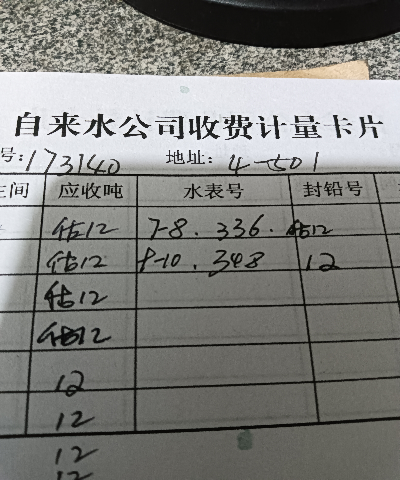 自来水公司收费计量卡片
号:173140 地址: 4-501
主间 应收吨 水表号 封铅号
估12 7-8. 336. 估12
估12 9-10. 348 12
估12
估12
12
12
12
12